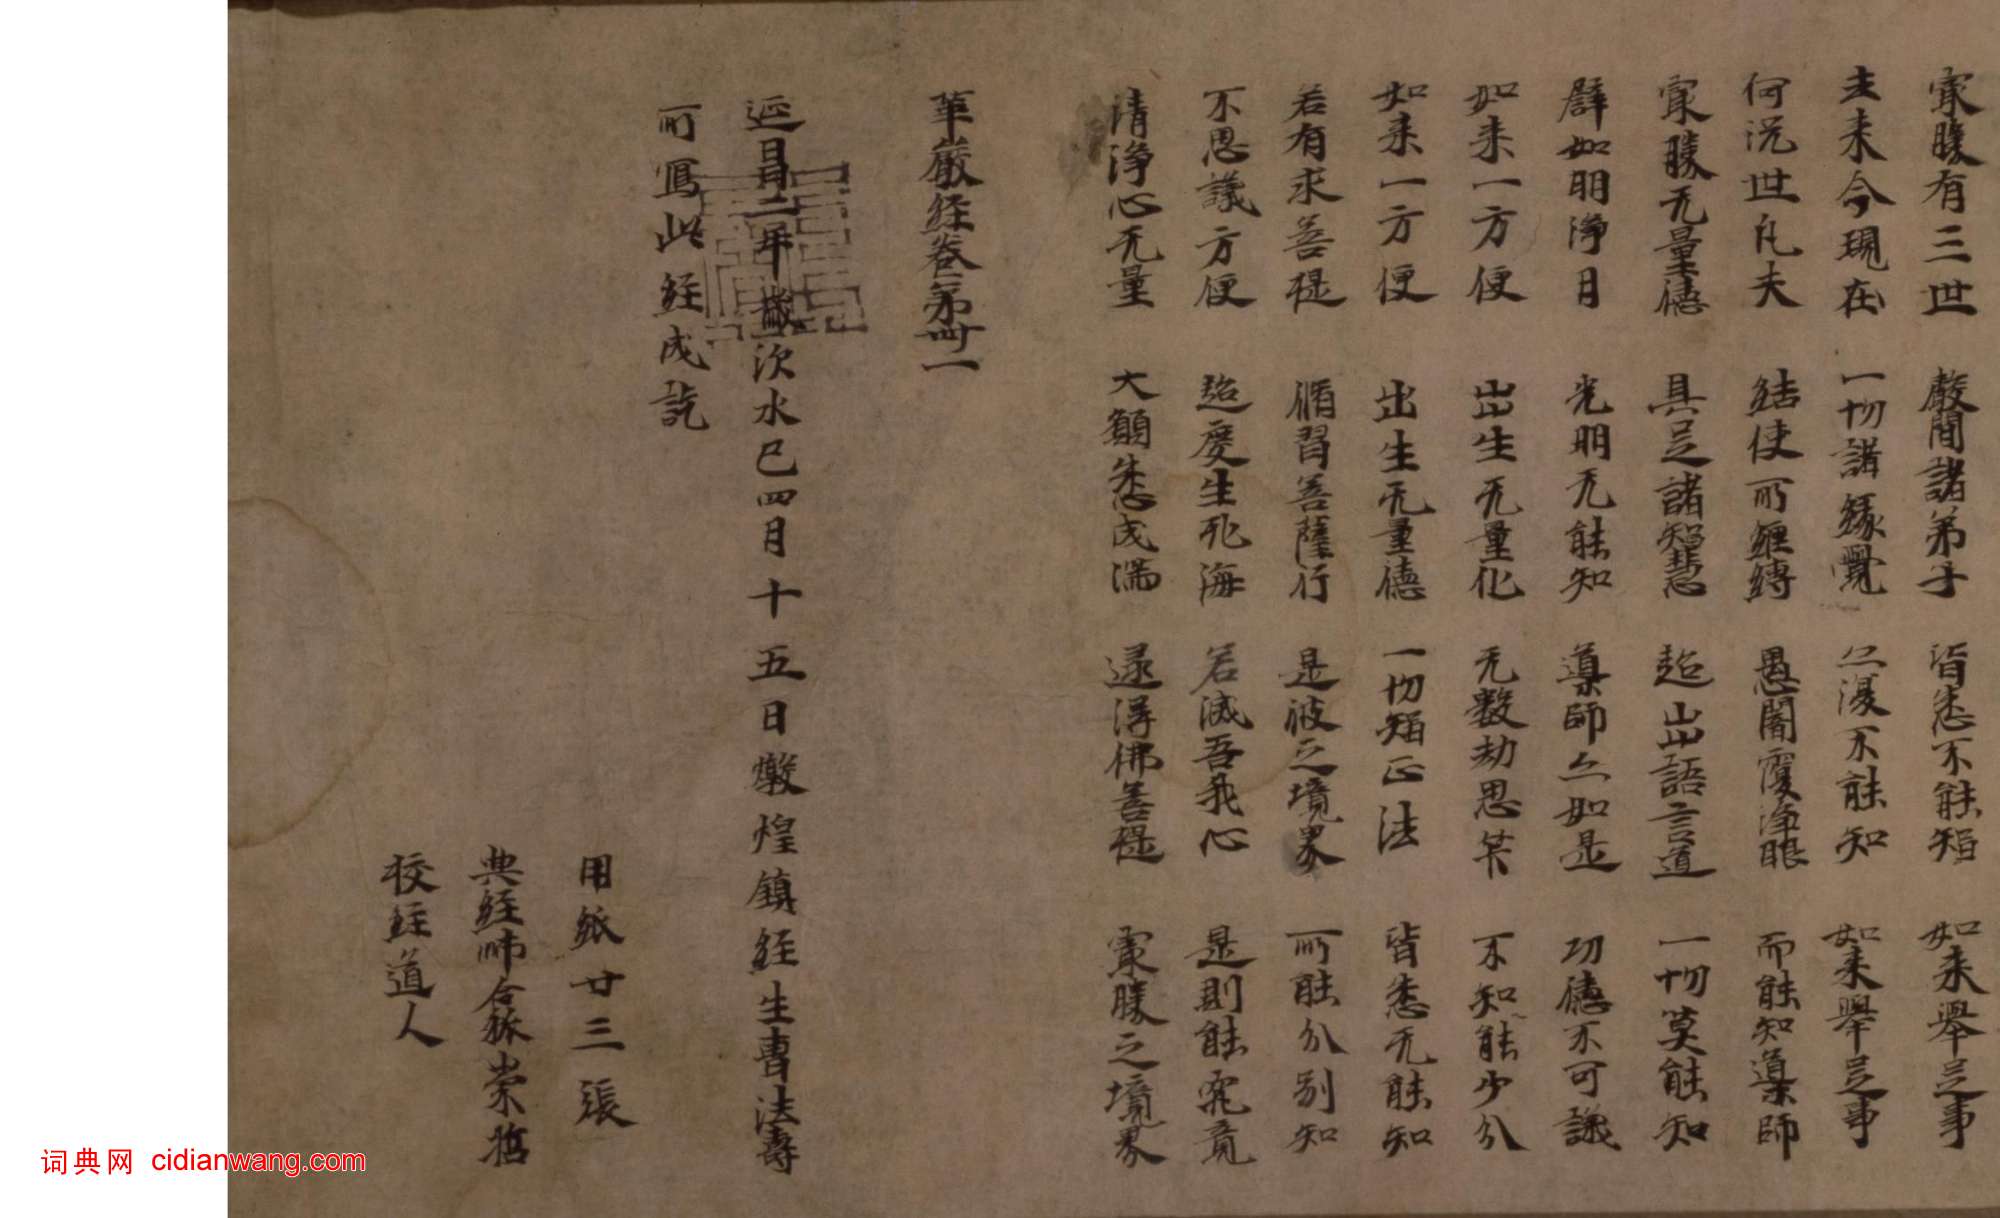 冣勝有三世 嚴閒諸弟子 皆悉不能知 如来舉足事
去来今現在 一切諸緣覺 亦復不能知 如来舉足事
何況世凡夫 結使所纏縛 愚闇覆淨眼 而能知導師
冣勝无量德 具足諸智慧 超出語言道 一切莫能知
譬如明淨月 光明无能知 導師亦如是 功德不可議
如来一方便 出生无量化 无數劫思筭 不知能少分
如来一方便 出生无量德 一切知正法 皆悉无能知
若有求菩提 脩習菩薩行 是彼之境界 所能分别知
不思議方便 超度生死海 若滅吾我心 是則能究竟
清淨心无量 大願悉成滿 逮得佛菩提 冣勝之境界
華嚴經卷第卌一
延昌二年歲次水巳四月十五日燉煌鎮經生曹法壽
所寫此經成訖
用紙廿三張
典經師令狐崇哲
校經道人
词典网 cidianwang.com